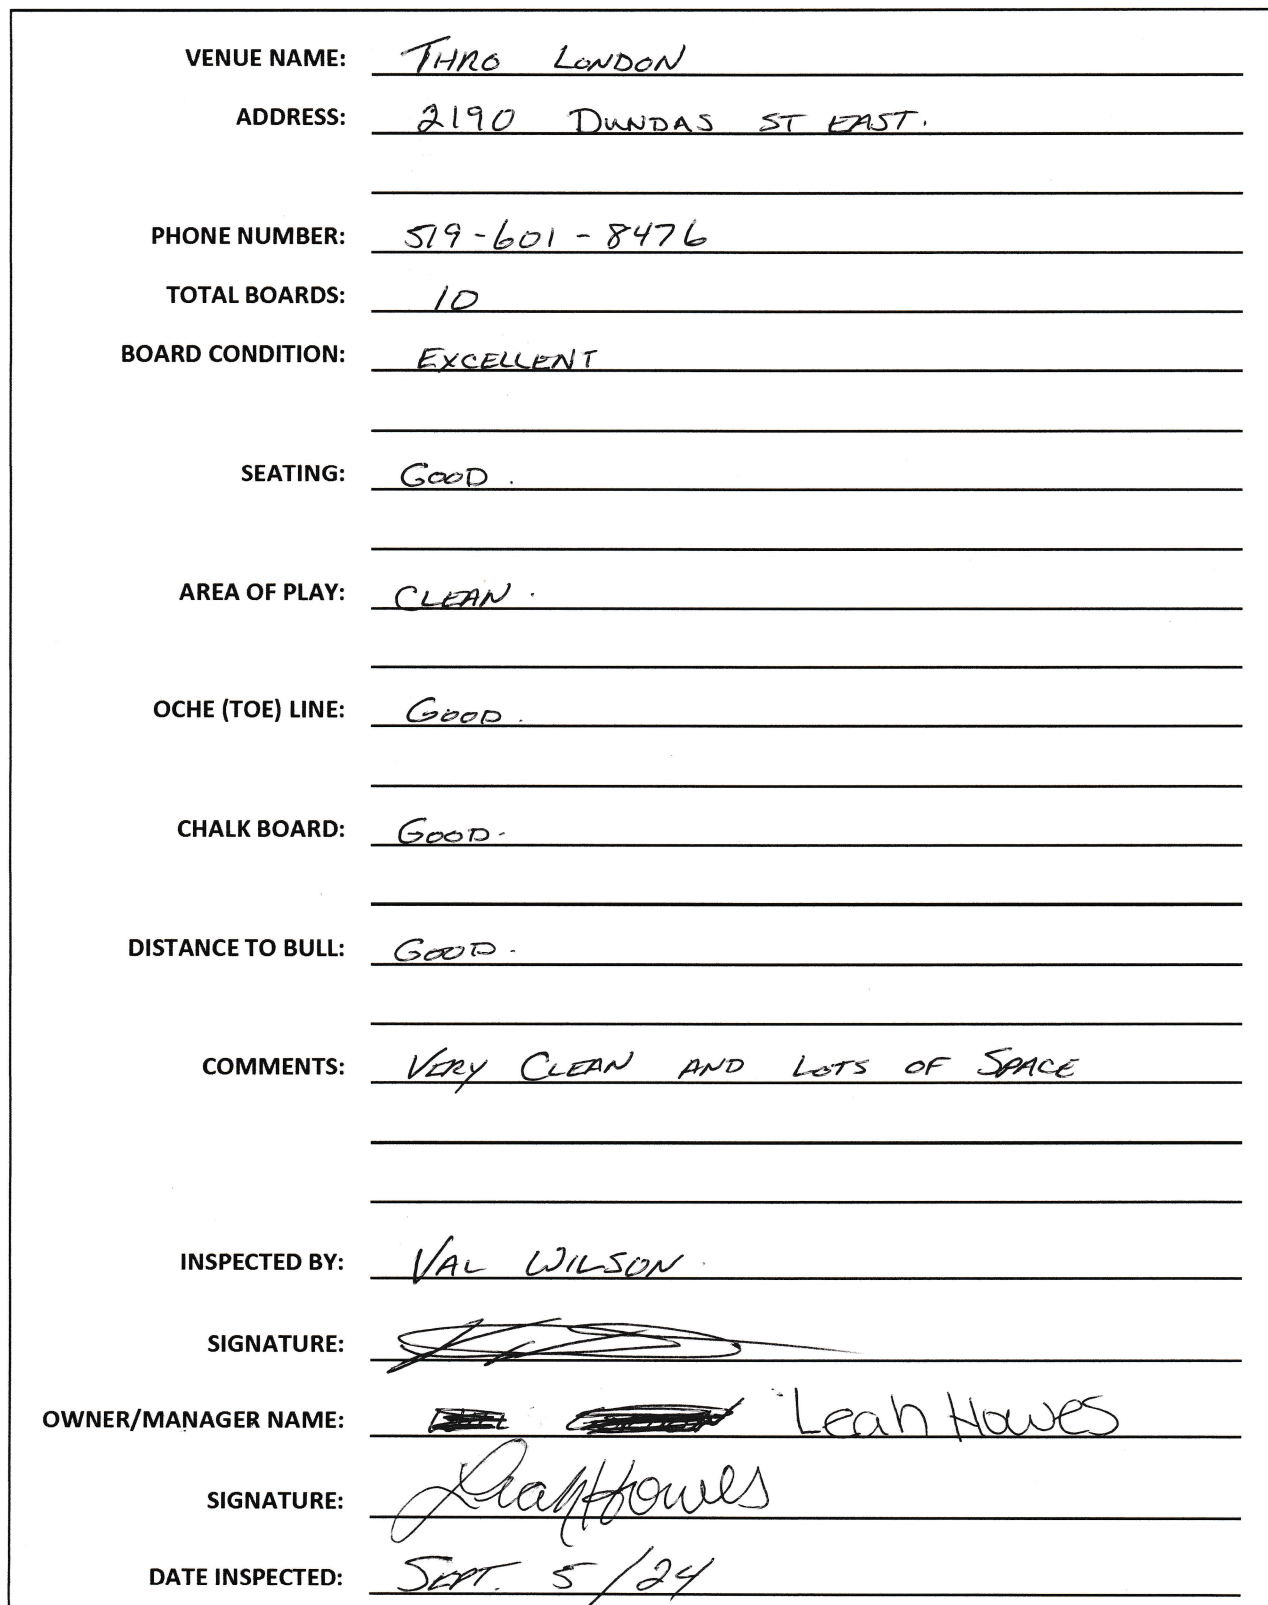 VENUE NAME: THRO LONDON
ADDRESS: 2190 DUNDAS ST EAST.
PHONE NUMBER: 519-601-8476
TOTAL BOARDS: 10
BOARD CONDITION: EXCELLENT
SEATING: GOOD.
AREA OF PLAY: CLEAN.
OCHE (TOE) LINE: GOOD.
CHALK BOARD: GOOD.
DISTANCE TO BULL: GOOD.
COMMENTS: VERY CLEAN AND LOTS OF SPACE
INSPECTED BY: VAL WILSON.
SIGNATURE:
OWNER/MANAGER NAME: Leah Howes
SIGNATURE: Leah Howes
DATE INSPECTED: SEPT. 5/24